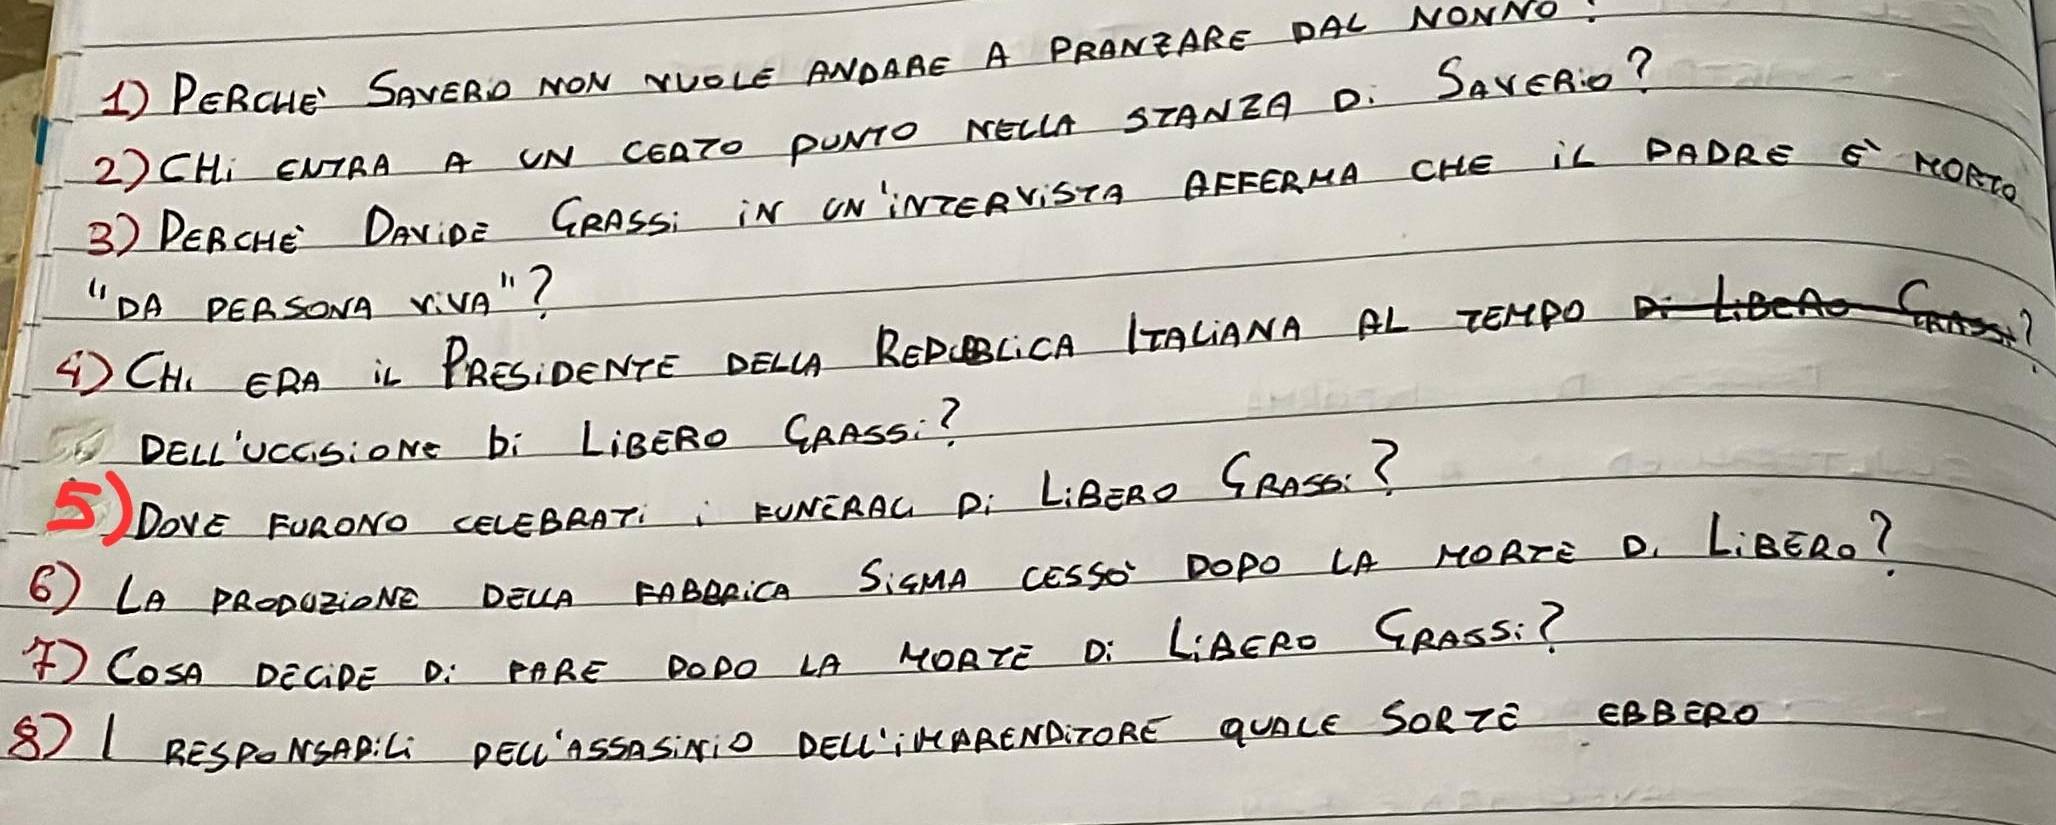 1) PERCHE' SAVERIO NON VUOLE ANDARE A PRANZARE DAL NONNO?
2) CHi ENTRA A UN CERTO PUNTO NELLA STANZA Di SAVERiO?
3) PERCHE' DAViDE GRASSi iN UN'iNTERViSTA AFFERMA CHE iL PADRE E' MORTO
"DA PERSONA ViVA"?
4) CHi ERA iL PRESiDENTE DELLA REPUBBLiCA ITALiANA AL TEMPO Di LiBERO GRASSi?
DELL'UCCiSiONE Di LiBERO GRASSi?
5) DOVE FURONO CELEBRATi i FUNERALi Di LiBERO GRASSi?
6) LA PRODUZiONE DELLA FABBRiCA SiGMA CESSO' DOPO LA MORTE Di LiBERO?
7) COSA DECiDE Di FARE DOPO LA MORTE Di LiBERO GRASSi?
8) I RESPONSABiLi DELL'ASSASiNiO DELL'iMPRENDiTORE QUALE SORTE EBBERO